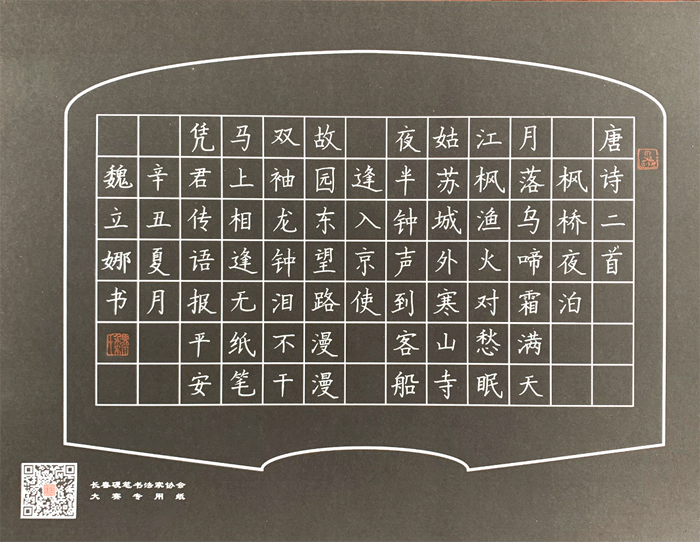 唐诗二首
枫桥夜泊
月落乌啼霜满天
江枫渔火对愁眠
姑苏城外寒山寺
夜半钟声到客船
逢入京使
故园东望路漫漫
双袖龙钟泪不干
马上相逢无纸笔
凭君传语报平安
辛丑夏月
魏立娜书
长春硬笔书法家协会
大赛专用纸